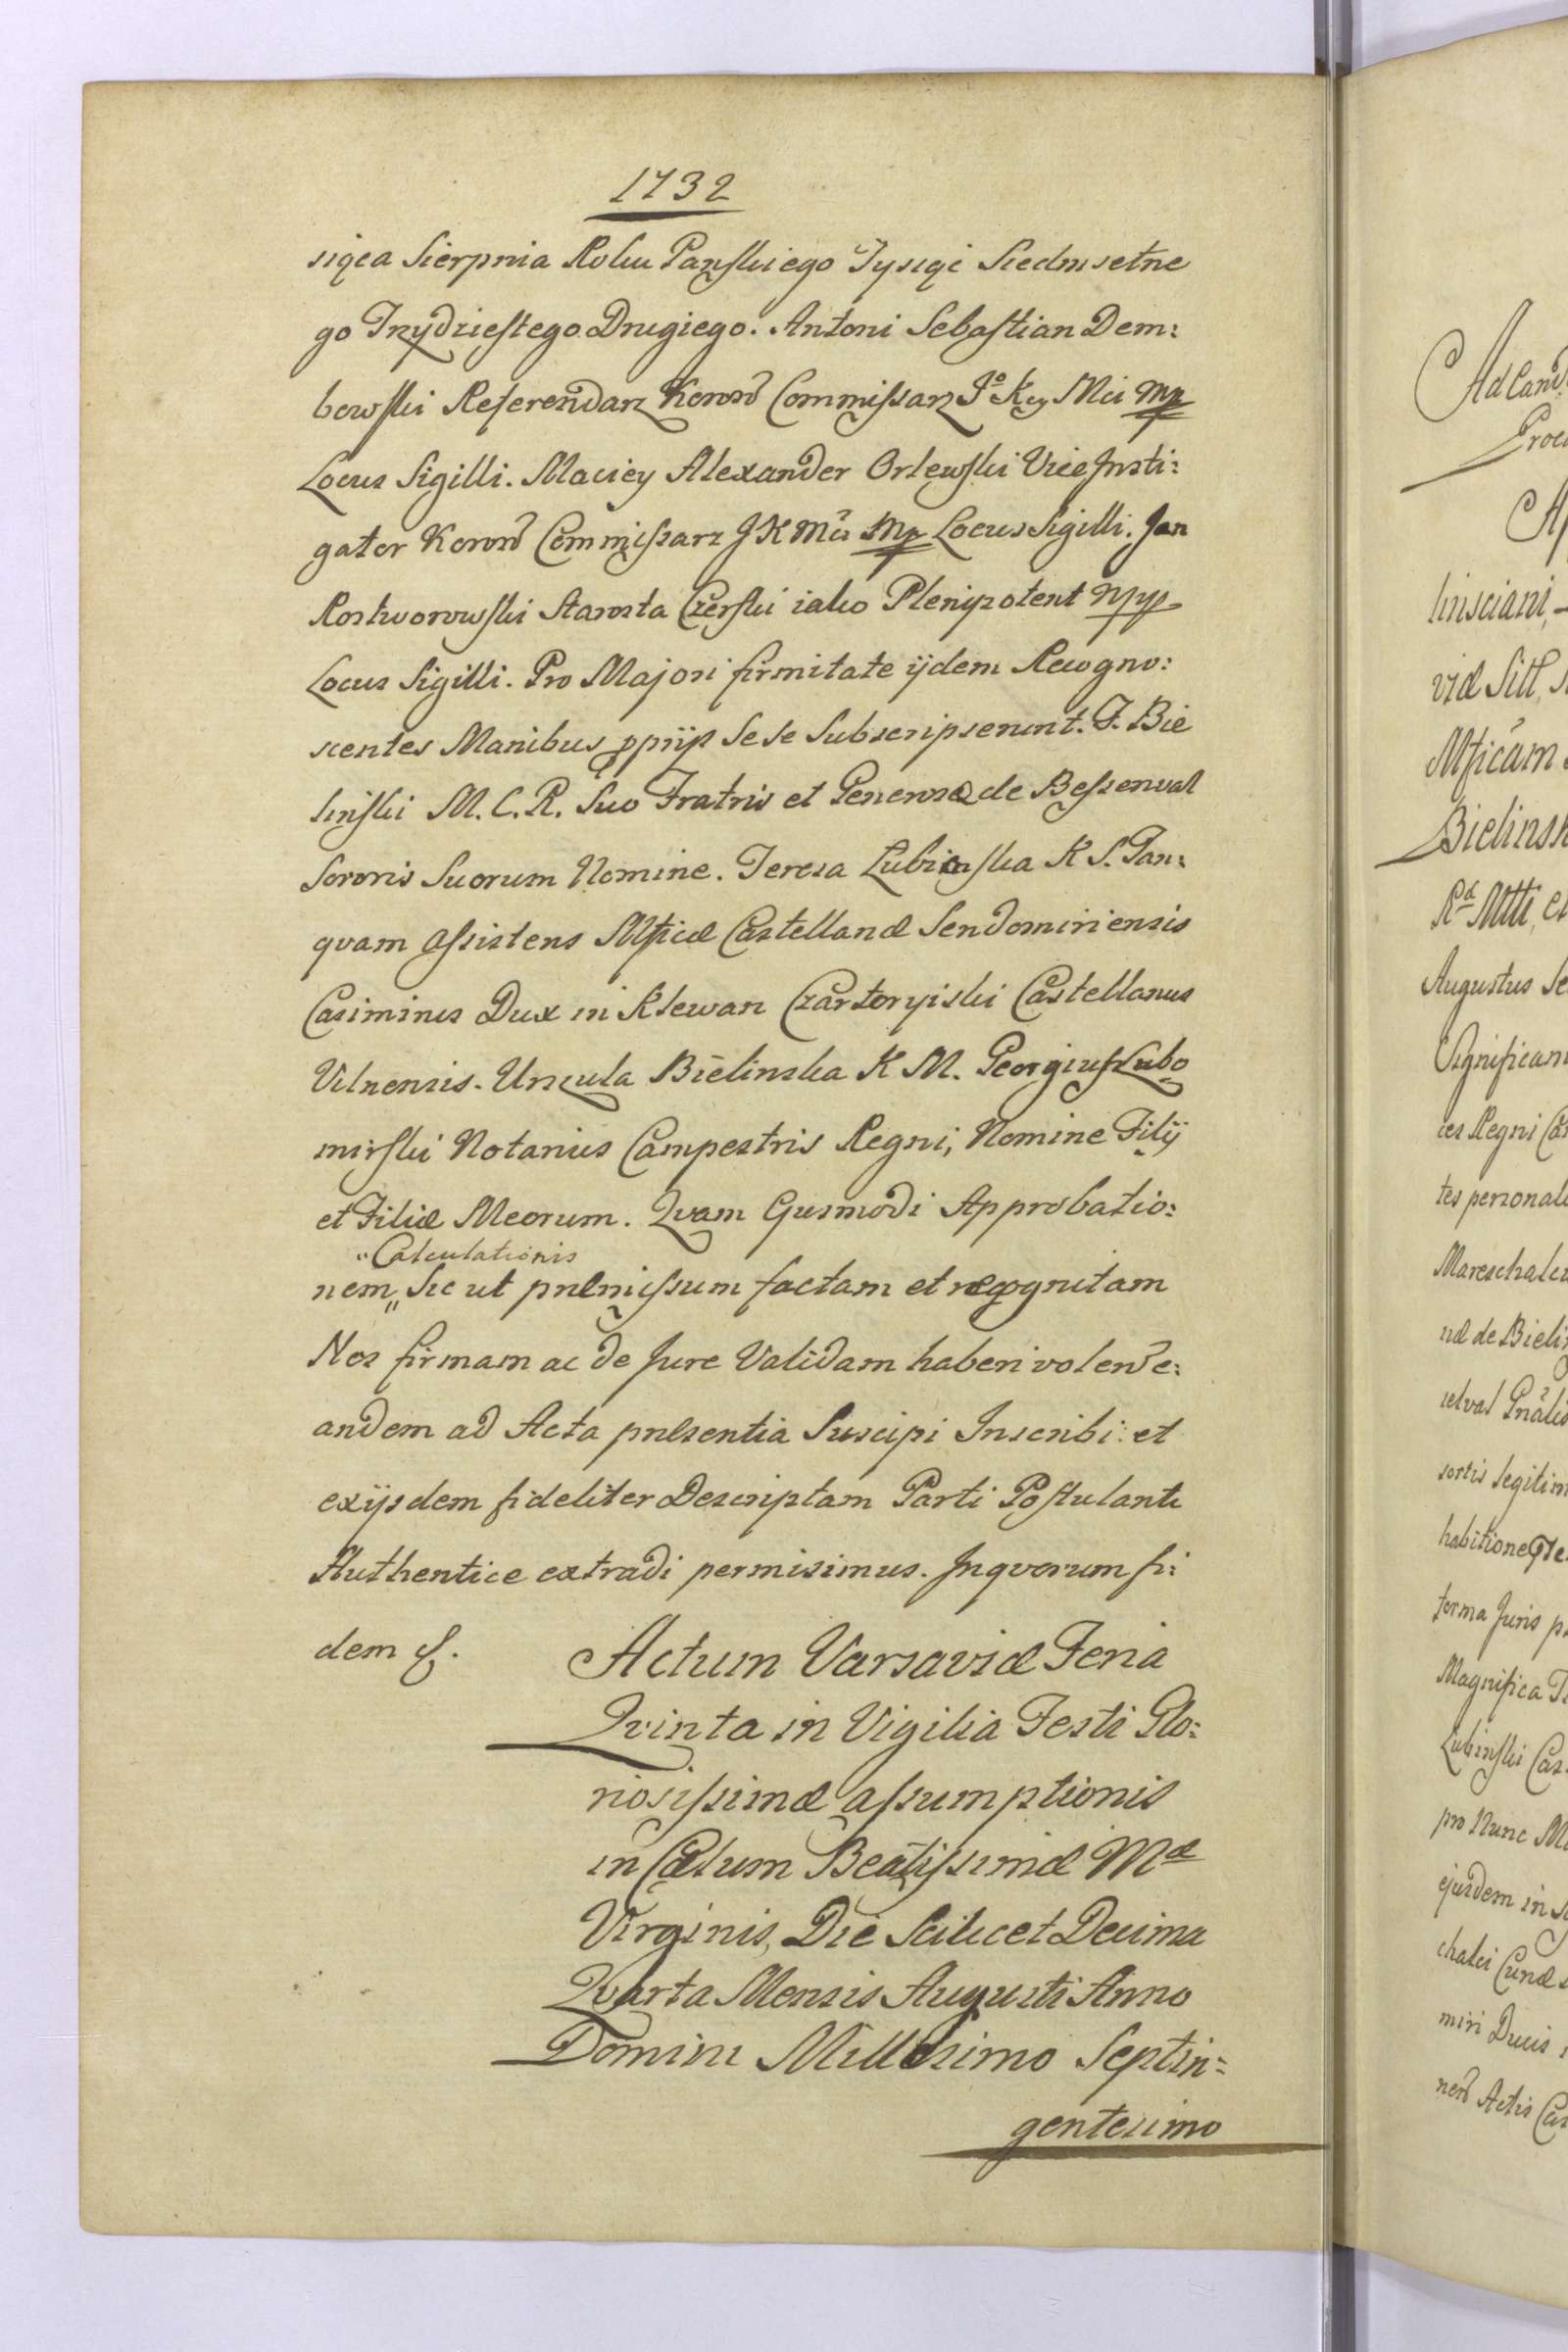 1732
siąca Sierpnia Roku Pańskiego Tysiąć Siedmsetne
go Trzydziestego Drugiego. Antoni Sebastian Dem:
bowski Referendarz Koron̄ Commissarz Jº Key Mci Mp
Locus Sigilli. Maciey Alexander Orlewski Vice Insti:
gator Koron̄ Commissarz J K Mci Mp Locus Sigilli. Jan
Roskworowski Starosta Czerski iako Plenipotent Mpp
Locus Sigilli. Pro Majori firmitate ijdem Recogno:
scentes Manibus ppriis Sese Subscripserunt. F. Bie
linski M. C. R. Suo Fratris et Generosæ de Bessenval
Sororis Suorum Nomine. Teresa Łubienska K S. Tan:
quam Assistens Mficæ Castellanæ Sendomiriensis
Casimirus Dux in Klewan Czartoryiski Castellanus
Vilnensis. Urszula Bielinska K M. Georgius Lubo
mirski Notarius Campestris Regni, Nomine Filij
et Filiæ Meorum. Qvam Eiusmodi Approbatio:
„Calculationis
nem„ Sic ut præmissum factam et recognitam
Nos firmam ac de Jure Validam haberi volen̄ e:
andem ad Acta præsentia Suscipi Inscribi: et
ex ijsdem fideliter Descriptam Parti Postulanti
Authentice extradi permisimus. In qvorum fi:
dem &. Actum Varsaviæ Feria
Qvinta in Vigilia Festi Glo:
riosissimæ assumptionis
in Cœlum Beatissimæ Mæ
Virginis, Die Scilicet Decima
Qvarta Mensis Augusti Anno
Domini Millesimo Septin:
gentesimo
Ad Cand
linsciani,
viæ Sitt,
Mficam
Bielinsk
Rd Mtti, et
Augustus Se
Significam
ces Regni Ca
tes personal
Mareschalc
næ de Bieli
selval
sortis legitim
habitione
forma Juris p
Magnifica T
Lubinski Cas
pro Nunc M
ejusdem in S
chalci Curiæ
miri Ducis
Actis Cas